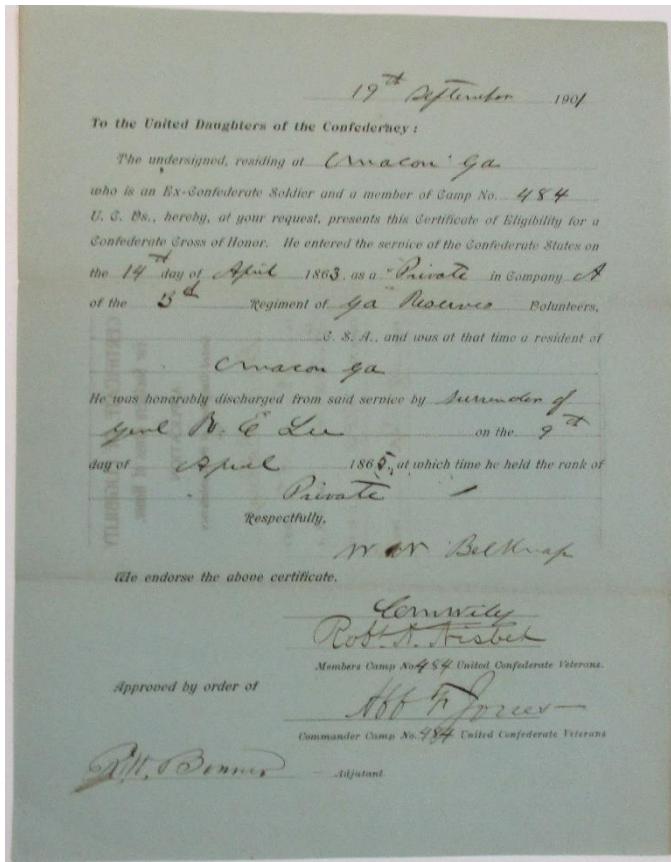 19th September 1901
To the United Daughters of the Confederacy:
The undersigned, residing at Macon Ga
who is an Ex-Confederate Soldier and a member of Camp No. 484
U. C. Vs., hereby, at your request, presents this Certificate of Eligibility for a
Confederate Cross of Honor. He entered the service of the Confederate States on
the 14th day of April 1863. as a "Private" in Company A
of the 3d Regiment of Ga Reserves Volunteers,
C. S. A., and was at that time a resident of
Macon Ga
He was honorably discharged from said service by surrender of
Genl R. E Lee on the 9th
day of April 1865, at which time he held the rank of
Private
Respectfully,
W W Belknap
We endorse the above certificate.
C M Wiley
Robt. A. Nisbet
Members Camp No. 484 United Confederate Veterans.
Approved by order of
Jones
Commander Camp No. 484 United Confederate Veterans
Bonner Adjutant